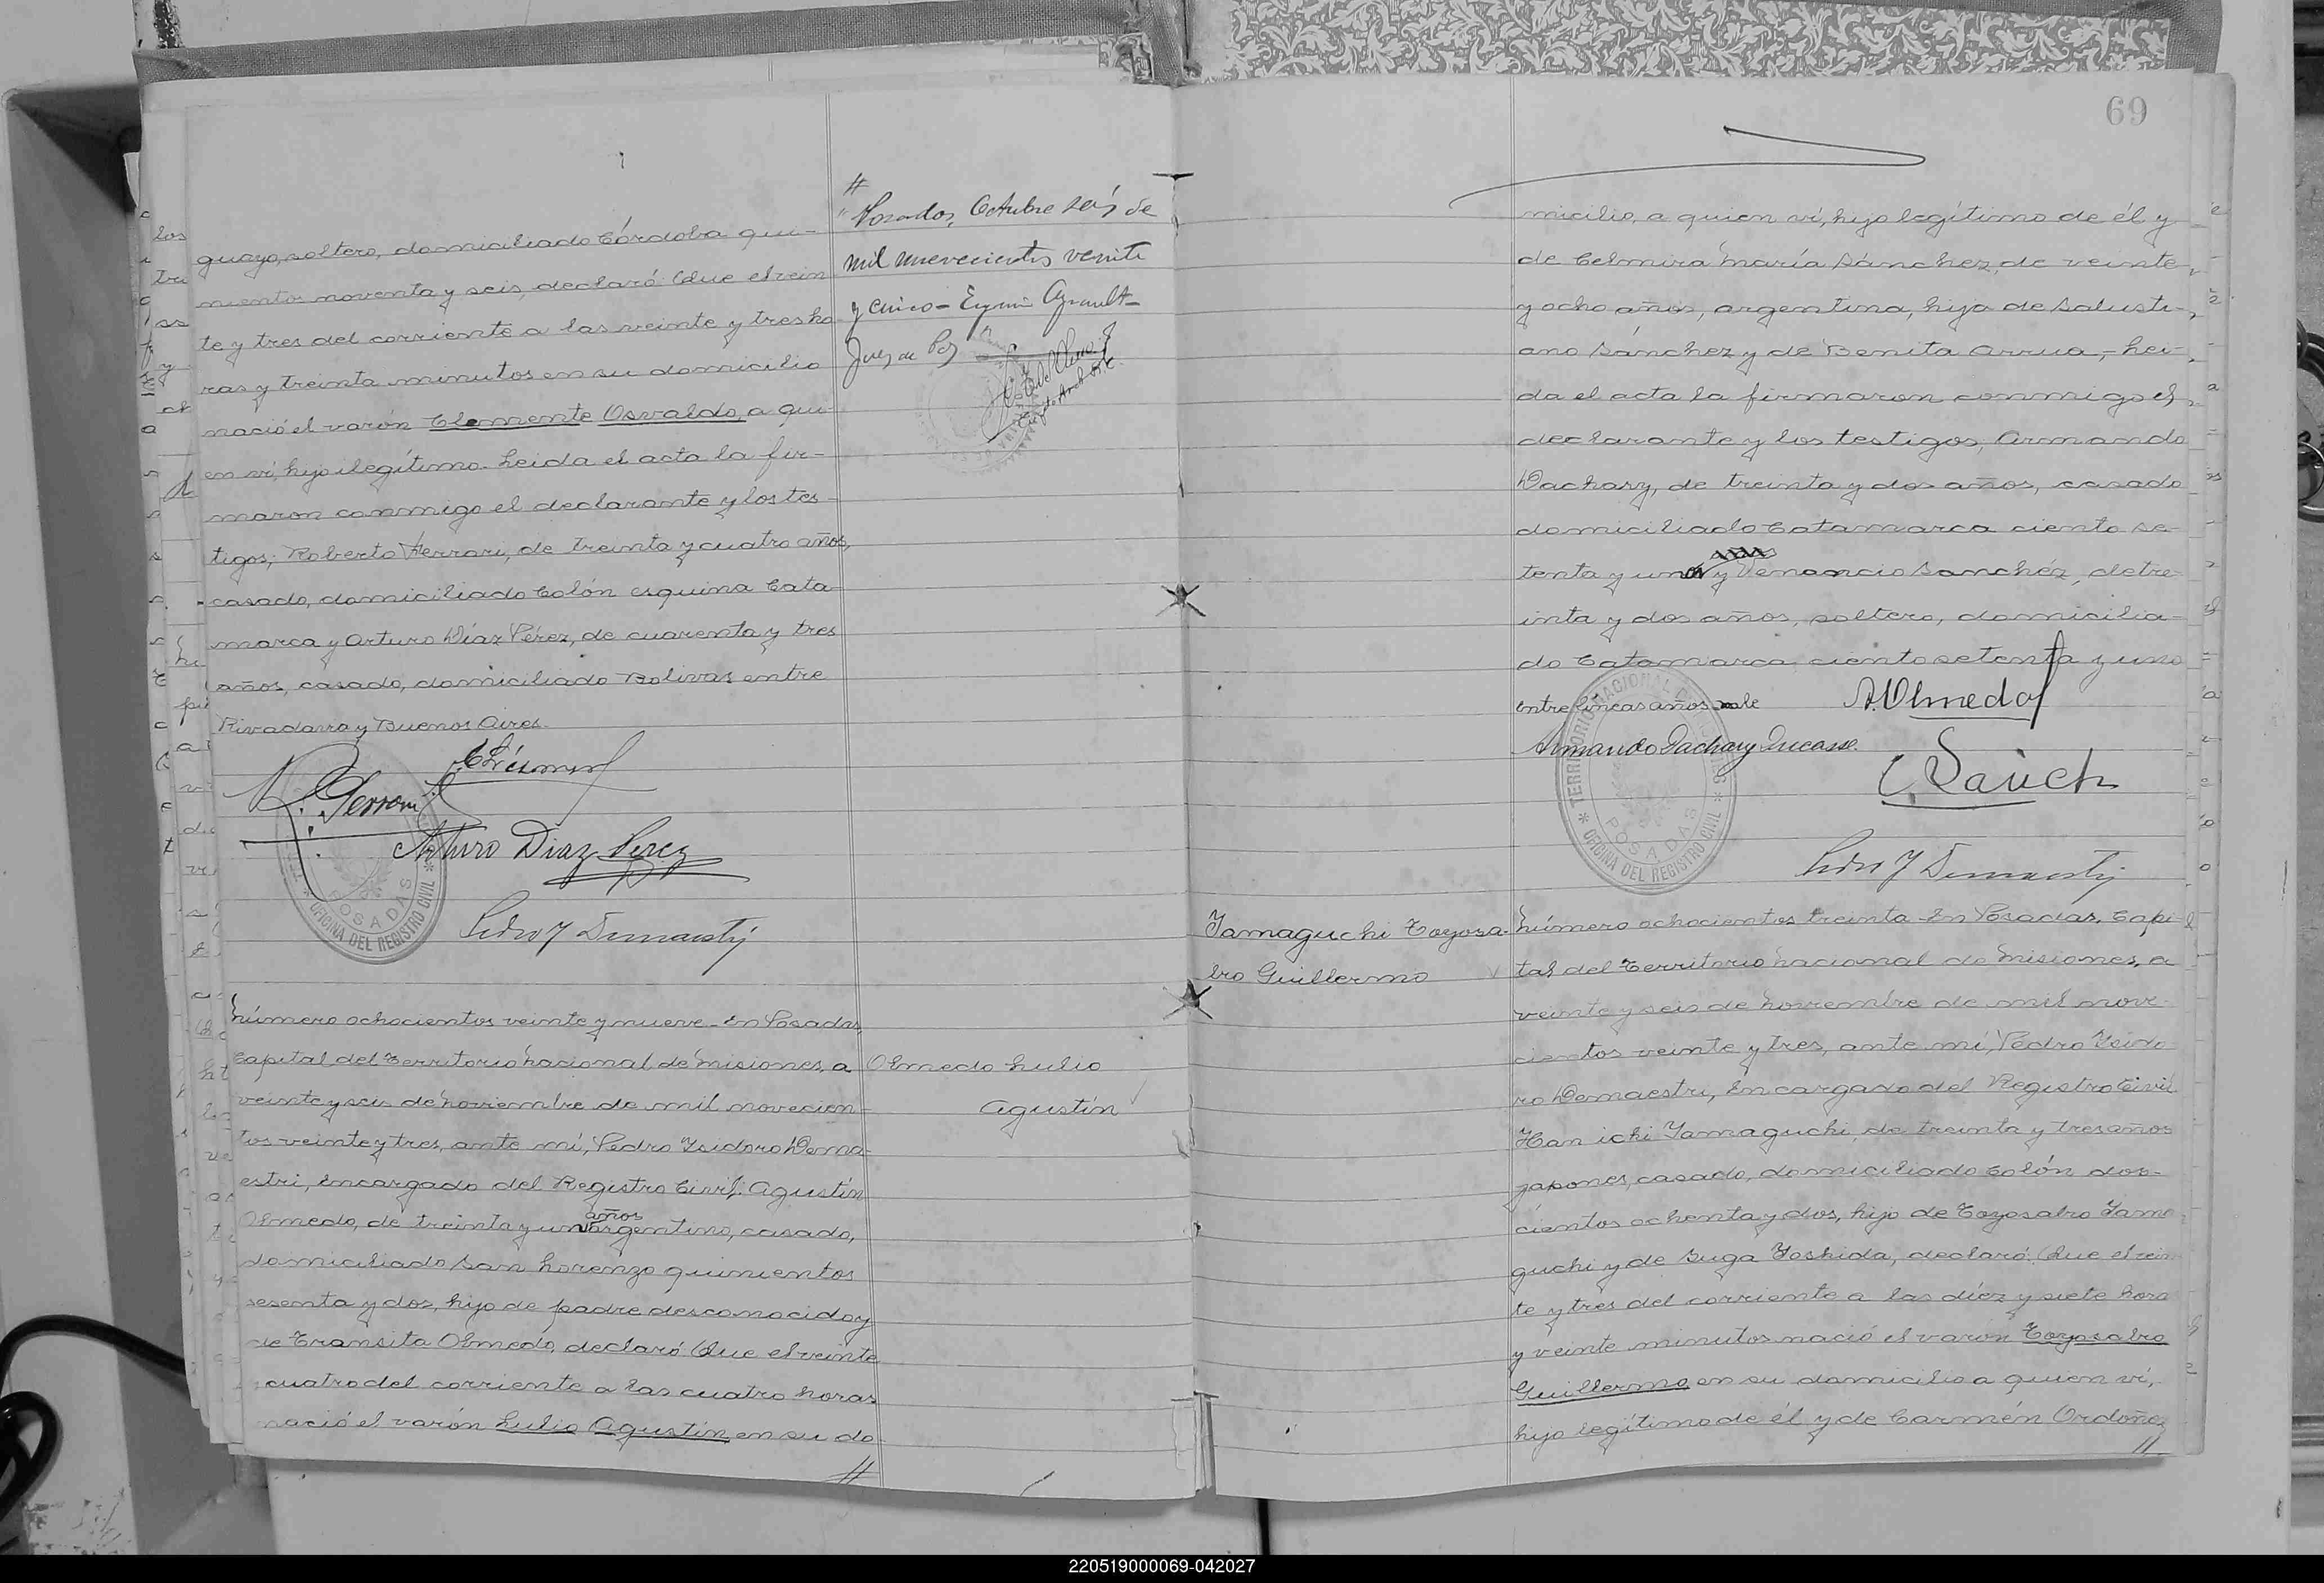 guayo, soltero, domiciliado Córdoba qui-
nientos noventa y seis, declaró: Que el vein
te y tres del corriente a las veinte y tres ho
ras y treinta minutos en su domicilio
nació el varón Clemente Osvaldo, a qui-
en vi, hijo ilegítimo. Leida el acta la fir-
maron conmigo el declarante y los tes-
tigos; Roberto Ferrari, de treinta y cuatro años,
casado, domiciliado Colón esquina Cata
marca y Arturo Díaz Pérez, de cuarenta y tres
años, casado, domiciliado Bolivar entre
Rivadavia y Buenos Aires.
Arturo Diaz Perez
POSADAS
OFICINA DEL REGISTRO CIVIL
Pedro I Demaestri
número ochocientos veinte y nueve - En Posadas,
Capital del Territorio nacional de misiones, a
veinte y seis de noviembre de mil novecien-
tos veinte y tres, ante mí, Pedro Isidoro Dema-
estri, Encargado del Registro Civil: Agustín
años
Olmedo, de treinta y un argentino, casado,
domiciliado San Lorenzo quinientos
sesenta y dos, hijo de padre desconocido y
de Transita Olmedo, declaró: Que el veinte
cuatro del corriente a las cuatro horas
nació el varón Lulio Agustín en su do
//
//
Posadas, Octubre seis de
mil nuevecientos veinte
y cinco -
Juez de Paz
Olmedo Lulio
Agustín
69
micilio, a quien ví, hijo legítimo de él y
de Celmira María Sánchez, de veinte
y ocho años, argentina, hija de Salusti-
ano Sánchez y de Benita Arrua, - Leí-
da el acta la firmaron conmigo el
declarante y los testigos, Armando
Dachary, de treinta y dos años, casado
domiciliado Catamarca ciento se-
tenta y uno y Venancio Sanchéz, de tre-
inta y dos años, soltero, domicilia-
do Catamarca ciento setenta y uno
Entre líneas años vale
A. Olmedo
Armando Dachary Ducasse
TERRITORIO NACIONAL DE MISIONES
POSADAS
OFICINA DEL REGISTRO CIVIL
Pedro I Demaestri
Yamaguchi Toyosa-
bro Guillermo
número ochocientos treinta - En Posadas, Capi-
tal del Territorio nacional de misiones, a
veinte y seis de noviembre de mil nove-
cientos veinte y tres, ante mí, Pedro Isido
ro Demaestri, Encargado del Registro Civil
Han ichi Yamaguchi, de treinta y tres años
japones, casado, domiciliado Colón dos-
cientos ochenta y dos, hijo de Toyosabro Yama
guchi y de Suga Yoshida, declaró: Que el vein
te y tres del corriente a las diez y siete hora
y veinte minutos nació el varón Toyosabro
Guillermo en su domicilio a quien ví,
hijo legítimo de él y de Carmén Ordoñez
//
220519000069-042027